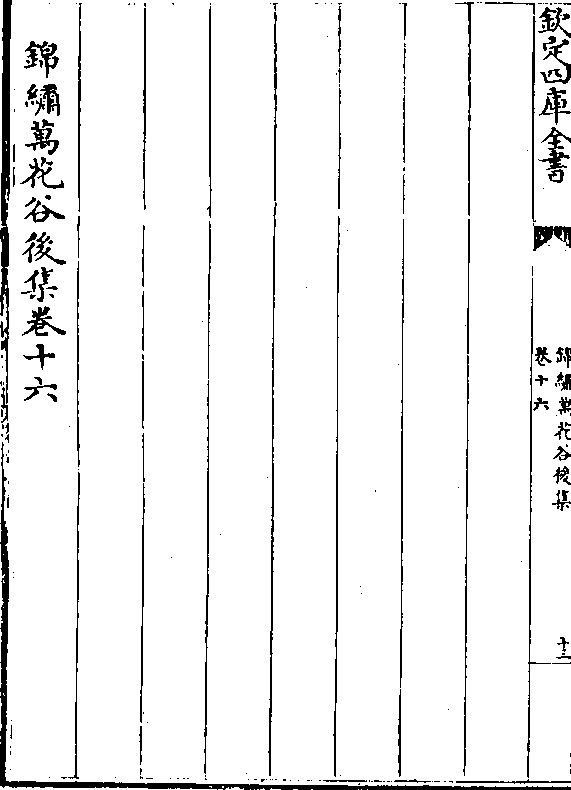 欽定四庫全書
錦繡萬花谷後集
卷十六
十三
錦繡萬花谷後集卷十六